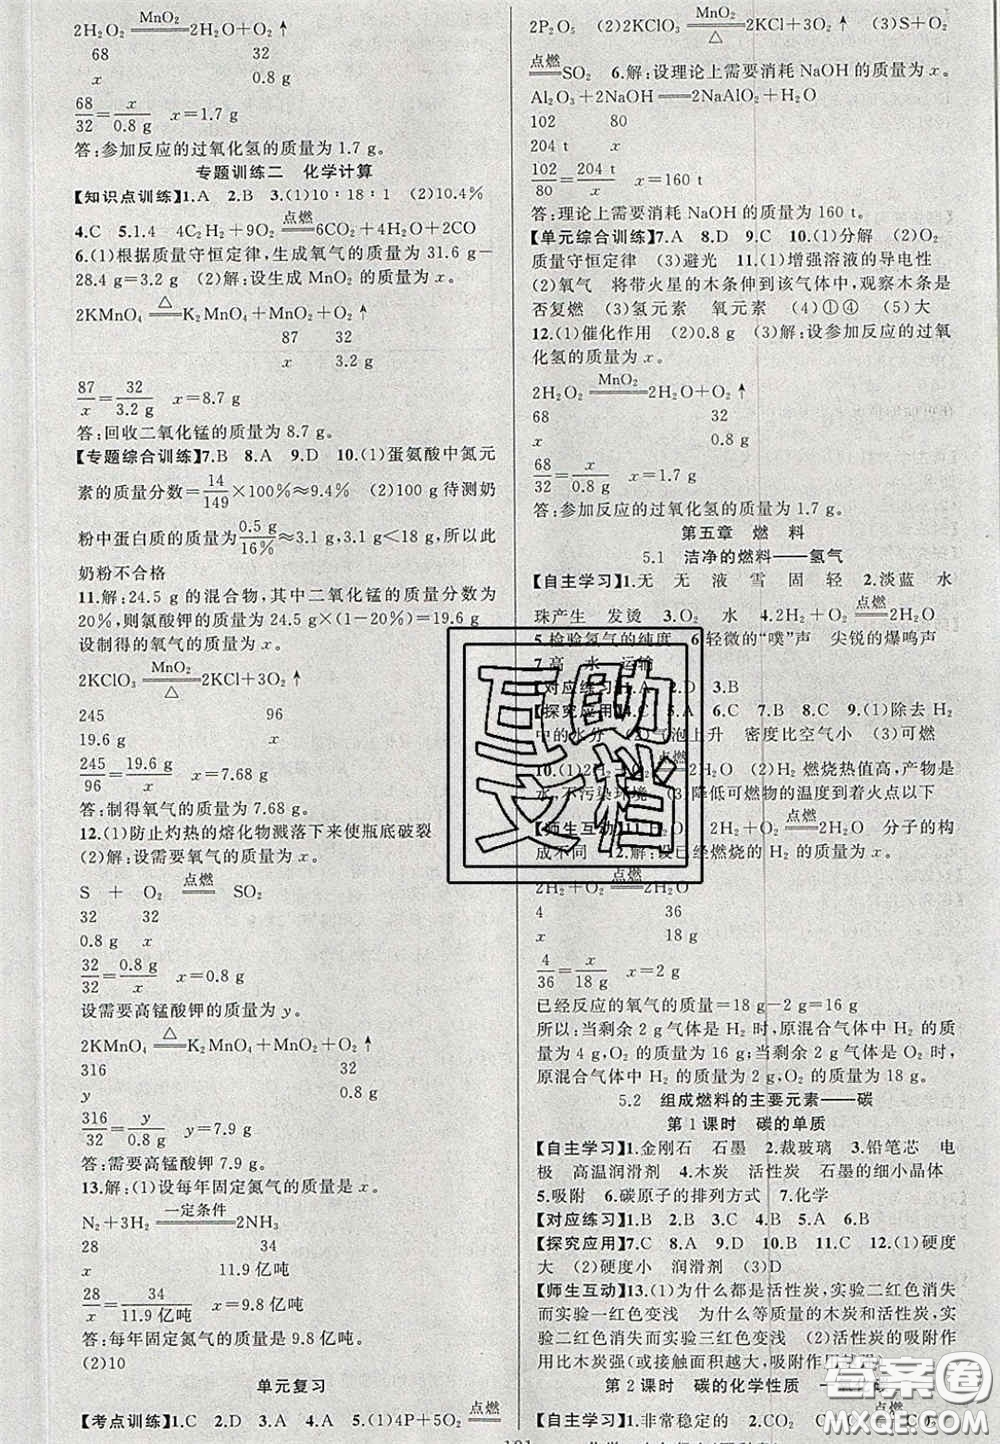 2H₂O₂ =MnO₂= 2H₂O+O₂↑
68 32
x 0.8 g
68/32=x/0.8 g x=1.7 g
答:参加反应的过氧化氢的质量为1.7 g。
专题训练二 化学计算
【知识点训练】1.A 2.B 3.(1)10∶18∶1 (2)10.4%
4.C 5.1.4 4C₂H₂+9O₂ =点燃= 6CO₂+4H₂O+2CO
6.(1)根据质量守恒定律,生成氧气的质量为31.6 g-
28.4 g=3.2 g (2)解:设生成MnO₂的质量为x。
2KMnO₄ =△= K₂MnO₄+MnO₂+O₂↑
87 32
x 3.2 g
87/x=32/3.2 g x=8.7 g
答:回收二氧化锰的质量为8.7 g。
【专题综合训练】7.B 8.A 9.D 10.(1)蛋氨酸中氮元
素的质量分数=14/149×100%≈9.4% (2)100 g待测奶
粉中蛋白质的质量为0.5 g/16%≈3.1 g,3.1 g<18 g,所以此
奶粉不合格
11.解:24.5 g的混合物,其中二氧化锰的质量分数为
20%,则氯酸钾的质量为24.5 g×(1-20%)=19.6 g
设制得的氧气的质量为x。
2KClO₃ =MnO₂/△= 2KCl+3O₂↑
245 96
19.6 g x
245/96=19.6 g/x x=7.68 g
答:制得氧气的质量为7.68 g。
12.(1)防止灼热的熔化物溅落下来使瓶底破裂
(2)解:设需要氧气的质量为x。
S + O₂ =点燃= SO₂
32 32
0.8 g x
32/32=0.8 g/x x=0.8 g
设需要高锰酸钾的质量为y。
2KMnO₄ =△= K₂MnO₄+MnO₂+O₂↑
316 32
y 0.8 g
316/32=y/0.8 g y=7.9 g
答:需要高锰酸钾7.9 g。
13.解:(1)设每年固定氮气的质量是x。
N₂+3H₂ =一定条件= 2NH₃
28 34
x 11.9亿吨
28/x=34/11.9亿吨 x=9.8亿吨
答:每年固定氮气的质量是9.8亿吨。
(2)10
单元复习
【考点训练】1.C 2.D 3.A 4.A 5.(1)4P+5O₂ =点燃=
2P₂O₅ (2)2KClO₃ =MnO₂/△= 2KCl+3O₂↑ (3)S+O₂
=点燃= SO₂ 6.解:设理论上需要消耗NaOH的质量为x。
Al₂O₃+2NaOH══2NaAlO₂+H₂O
102 80
204 t x
102/80=204 t/x x=160 t
答:理论上需要消耗NaOH的质量为160 t。
【单元综合训练】7.A 8.D 9.C 10.(1)分解 (2)O₂
质量守恒定律 (3)避光 11.(1)增强溶液的导电性
(2)氧气 将带火星的木条伸到该气体中,观察木条是
否复燃 (3)氢元素 氧元素 (4)①④ (5)大
12.(1)催化作用 (2)0.8 g (3)解:设参加反应的过氧
化氢的质量为x。
2H₂O₂ =MnO₂= 2H₂O+O₂↑
68 32
x 0.8 g
68/32=x/0.8 g x=1.7 g
答:参加反应的过氧化氢的质量为1.7 g。
第五章 燃 料
5.1 洁净的燃料——氢气
【自主学习】1.无 无 液 雪 固 轻 2.淡蓝 水
珠产生 发烫 3.O₂ 水 4.2H₂+O₂ =点燃= 2H₂O
5.检验氢气的纯度 6.轻微的“噗”声 尖锐的爆鸣声
7.高 水 运输
【对应练习】1.A 2.D 3.B
【探究应用】4.C 5.A 6.C 7.B 8.C 9.(1)除去H₂
中的水分 (2)气泡上升 密度比空气小 (3)可燃
10.(1)2H₂+O₂ =点燃= 2H₂O (2)H₂燃烧热值高,产物是
水,不污染环境 (3)降低可燃物的温度到着火点以下
【师生互动】11.H₂O 2H₂+O₂ =点燃= 2H₂O 分子的构
成不同 12.解:设已经燃烧的H₂的质量为x。
2H₂+O₂ =点燃= 2H₂O
4 36
x 18 g
4/36=x/18 g x=2 g
已经反应的氧气的质量=18 g-2 g=16 g
所以:当剩余2 g气体是H₂时,原混合气体中H₂的质
量为4 g,O₂的质量为16 g;当剩余2 g气体是O₂时,
原混合气体中H₂的质量为2 g,O₂的质量为18 g。
5.2 组成燃料的主要元素——碳
第1课时 碳的单质
【自主学习】1.金刚石 石墨 2.裁玻璃 3.铅笔芯 电
极 高温润滑剂 4.木炭 活性炭 石墨的细小晶体
5.吸附 6.碳原子的排列方式 7.化学
【对应练习】1.B 2.B 3.A 4.C 5.A 6.B
【探究应用】7.C 8.A 9.D 10.B 11.C 12.(1)硬度
大 (2)硬度小 润滑剂 (3)D
【师生互动】13.(1)为什么都是活性炭,实验二红色消失
而实验一红色变浅 为什么等质量的木炭和活性炭,实
验二红色消失而实验三红色变浅 (2)活性炭的吸附作
用比木炭强(或接触面积越大,吸附作用越强)
第2课时 碳的化学性质
【自主学习】1.非常稳定的 2.CO₂
互助文档
答案圈